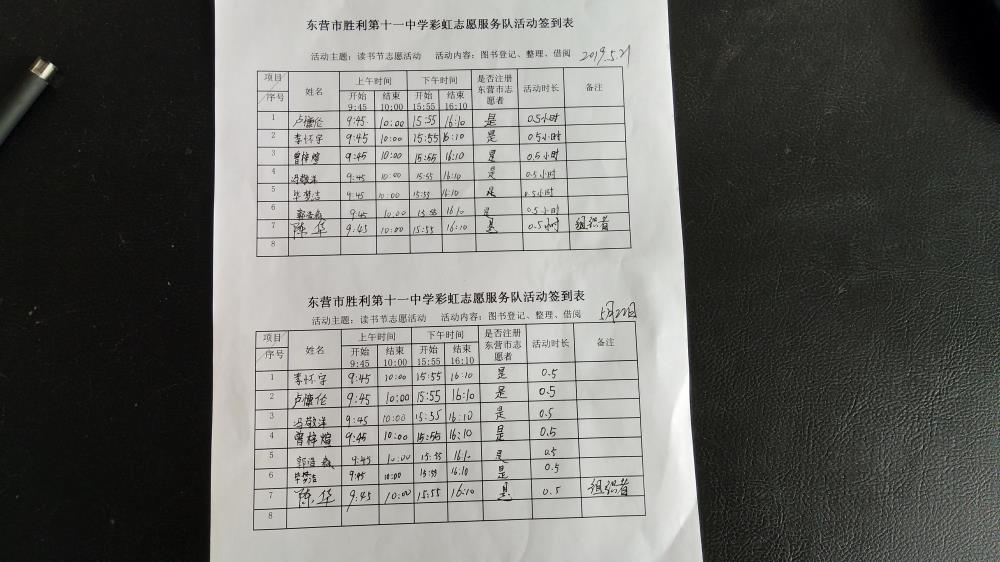 东营市胜利第十一中学彩虹志愿服务队活动签到表
活动主题：读书节志愿活动 活动内容：图书登记、整理、借阅 2019.5.21
项目 序号 姓名 上午时间 下午时间 是否注册东营市志愿者 活动时长 备注
开始 9:45 结束 10:00 开始 15:55 结束 16:10
1 卢德伦 9:45 10:00 15:55 16:10 是 0.5小时
2 李怀宇 9:45 10:00 15:55 16:10 是 0.5小时
3 曾梓煊 9:45 10:00 15:55 16:10 是 0.5小时
4 冯敬洋 9:45 10:00 15:55 16:10 是 0.5小时
5 毕梦洁 9:45 10:00 15:55 16:10 是 0.5小时
6 9:45 10:00 15:55 16:10 是 0.5小时
7 陈华 9:45 10:00 15:55 16:10 是 0.5小时 组织者
8
东营市胜利第十一中学彩虹志愿服务队活动签到表
活动主题：读书节志愿活动 活动内容：图书登记、整理、借阅 5月22日
项目 序号 姓名 上午时间 下午时间 是否注册东营市志愿者 活动时长 备注
开始 9:45 结束 10:00 开始 15:55 结束 16:10
1 李怀宇 9:45 10:00 15:55 16:10 是 0.5
2 卢德伦 9:45 10:00 15:55 16:10 是 0.5
3 冯敬洋 9:45 10:00 15:55 16:10 是 0.5
4 曾梓煊 9:45 10:00 15:55 16:10 是 0.5
5 9:45 10:00 15:55 16:10 是 0.5
6 毕梦洁 9:45 10:00 15:55 16:10 是 0.5
7 陈华 9:45 10:00 15:55 16:10 是 0.5 组织者
8